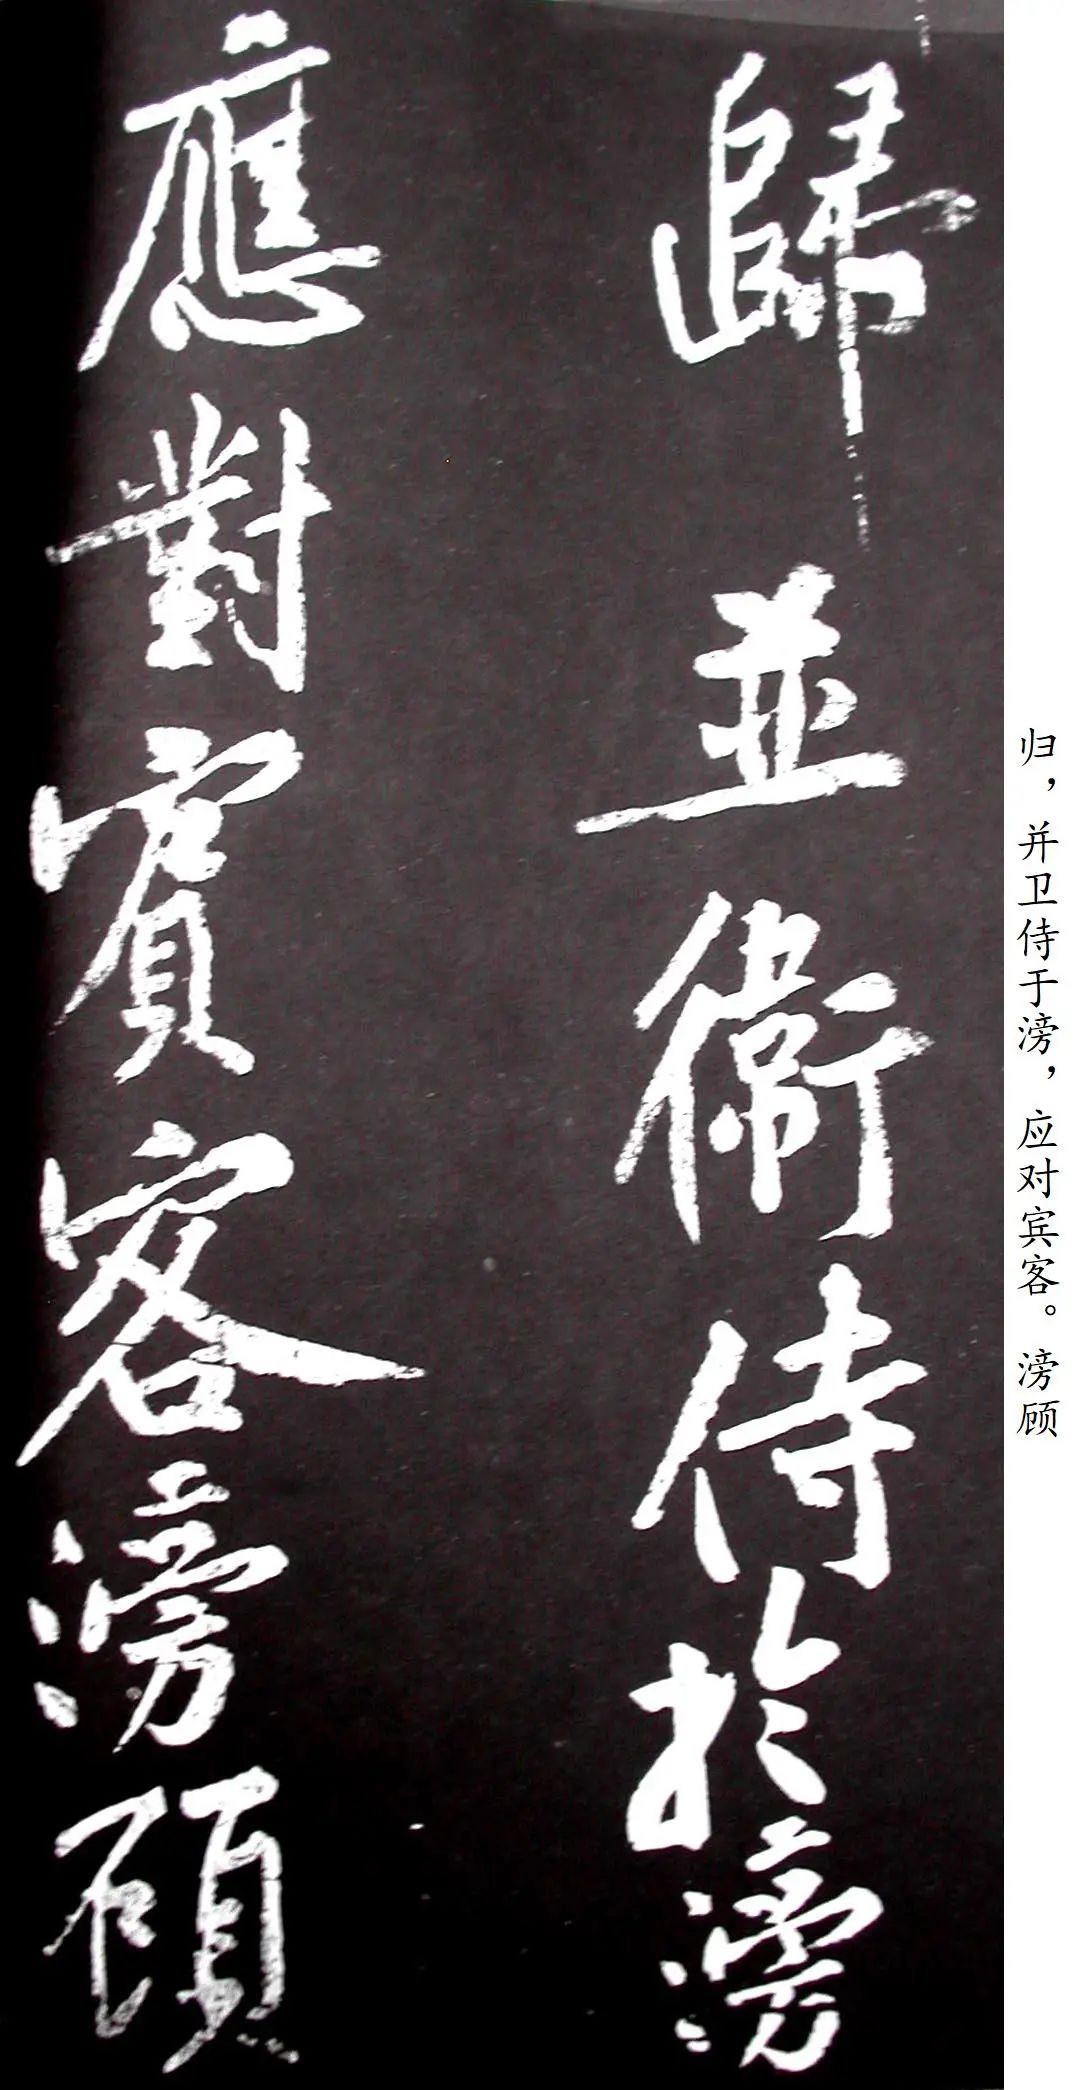 歸並衞侍於滂
應對賓客滂顧
归，并卫侍于滂，应对宾客。滂顾